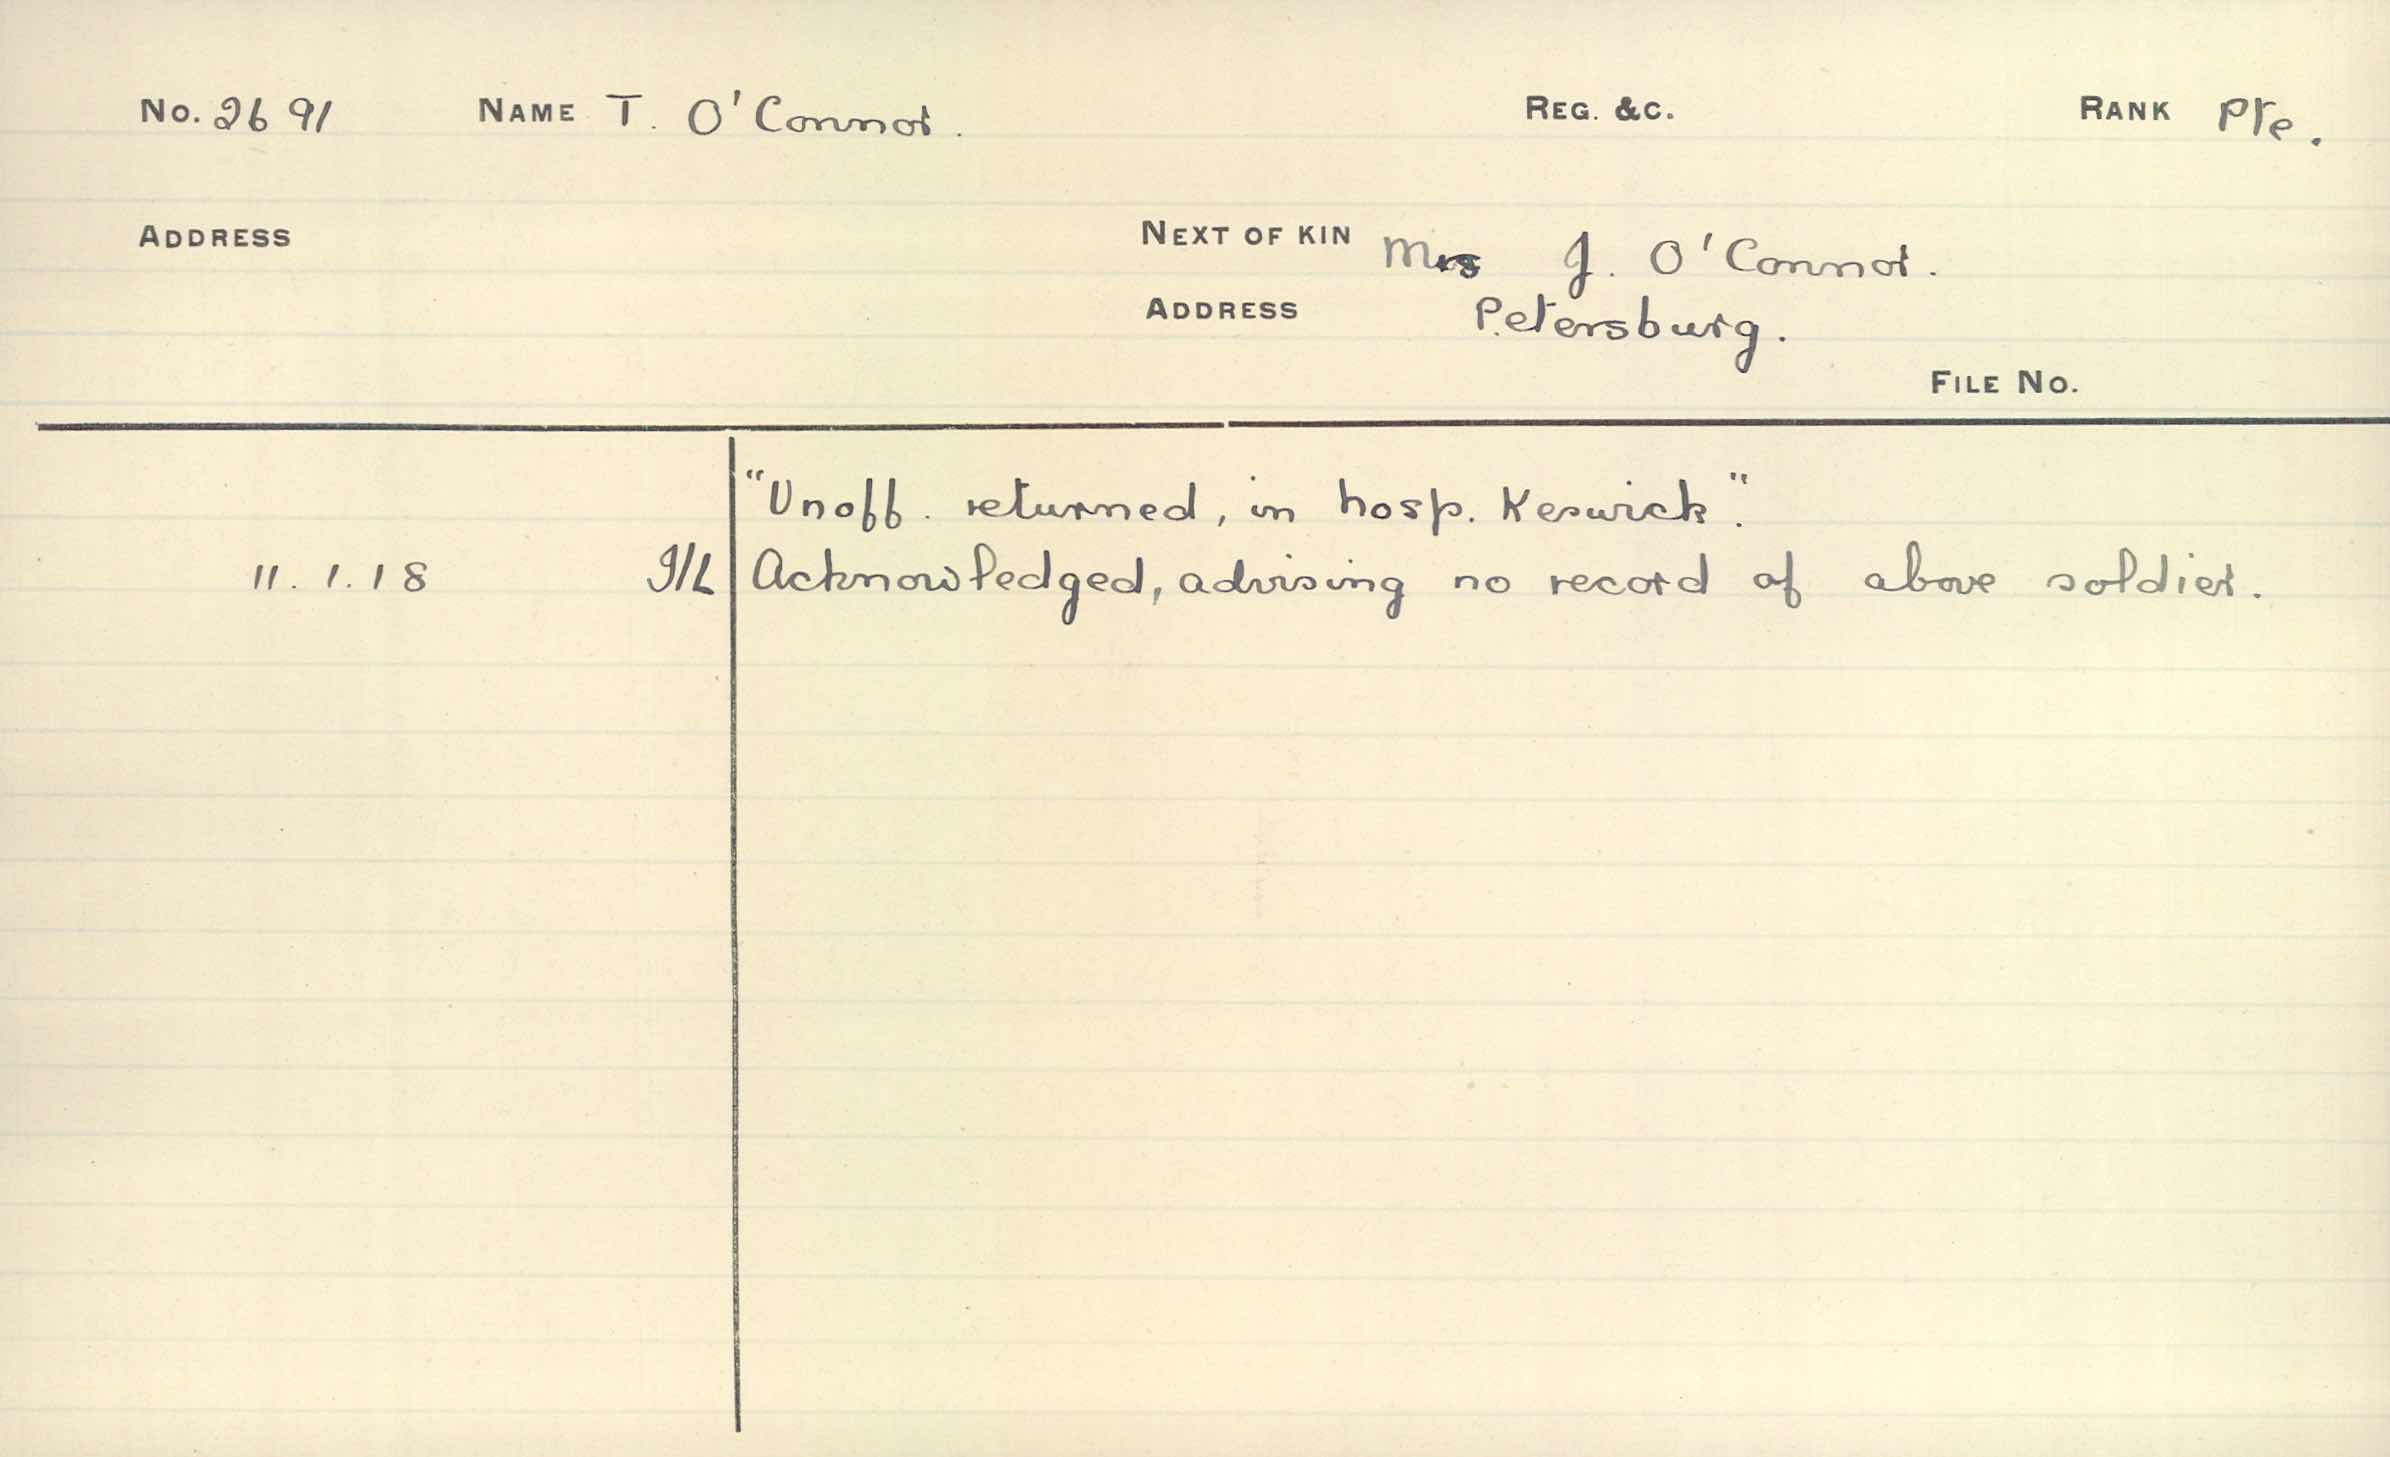 No. 2691 NAME T. O'Connor. REG. &C. RANK Pte.
ADDRESS NEXT OF KIN Mrs J. O'Connor.
ADDRESS Petersburg.
FILE NO.
"Unoff. returned, in hosp. Keswick".
11.1.18 I/L Acknowledged, advising no record of above soldier.